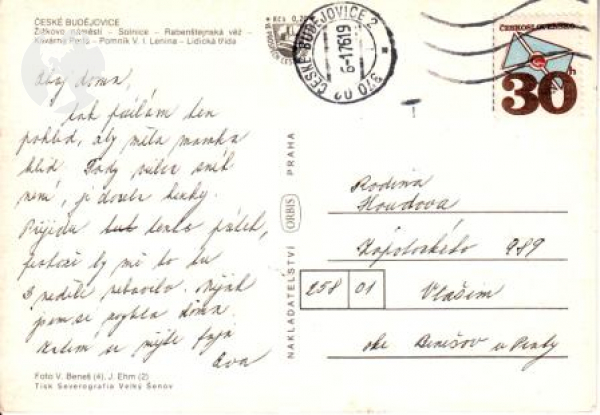 ČESKÉ BUDĚJOVICE
Žižkovo náměstí - Solnice - Rabenštejnská věž -
Kavárna Perla - Pomník V. I. Lenina - Lidická třída
Kčs 0,20
ČESKÉ BUDĚJOVICE 2
370 02
ČESKOSLOVENSKO
30h
Ahoj doma,
tak posílám ten
pohled, aby měla mamka
klid. Tady vůbec sníh
není, je docela hezky.
Přijedu tento pátek,
protože by mě to tu
s neděli nebavilo. Nějak
jsem se
Zatím se mějte fajn
Eva
Foto V. Beneš (4), J. Ehm (2)
Tisk Severografia Velký Šenov
NAKLADATELSTVÍ ORBIS PRAHA
Rodina
Houdova
Zápotockého 989
258 01 Vlašim
okr. Benešov u Prahy